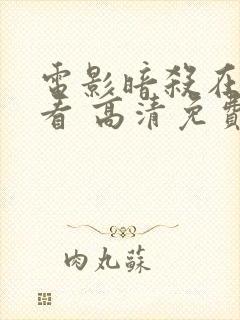 電影暗殺在
看 高清免費
肉丸蘇